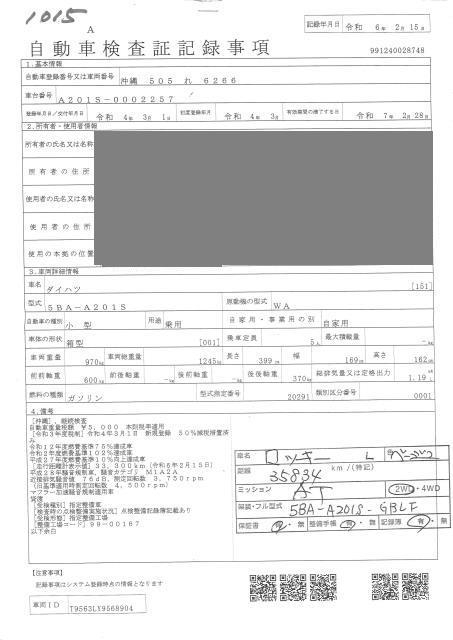 1015
A
記録年月日 令和 6年 2月 15日
自動車検査証記録事項
991240028748
1.基本情報
自動車登録番号又は車両番号 沖縄 505 れ 6266
車台番号 A201S-0002257
登録年月日/交付年月日 令和 4年 3月 1日 初度登録年月 令和 4年 3月 有効期間の満了する日 令和 7年 2月 28日
2.所有者・使用者情報
所有者の氏名又は名称
所有者の住所
使用者の氏名又は名称
使用者の住所
使用の本拠の位置
3.車両詳細情報
車名 ダイハツ [151]
型式 5BA-A201S 原動機の型式 WA
自動車の種別 小型 用途 乗用 自家用・事業用の別 自家用
車体の形状 箱型 [001] 乗車定員 5人 最大積載量 -kg
車両重量 970kg 車両総重量 1245kg 長さ 399cm 幅 169cm 高さ 162cm
前前軸重 600kg 前後軸重 -kg 後前軸重 -kg 後後軸重 370kg 総排気量又は定格出力 1.19L
燃料の種類 ガソリン 型式指定番号 20291 類別区分番号 0001
4.備考
[沖縄], 継続検査
自動車重量税額 ¥5,000 本則税率適用
[令和3年度税制] 令和4年3月1日 新規登録 50%減税措置済
み
令和12年度燃費基準75%達成車
令和2年度燃費基準102%達成車
平成27年度燃費基準10%向上達成車
[走行距離計表示値] 33,300km (令和6年2月15日)
平成28年騒音規制車, 騒音カテゴリ M1A2A
近接排気騒音値 76dB, 測定回転数 3,750rpm
(旧基準適用時測定回転数 4,500rpm)
マフラー加速騒音規制適用車
[受検種別] 指定整備車
[検査時の点検整備実施状況] 点検整備記録簿記載あり
[受検形態] 指定整備工場
[整備工場コード] 99-00167
以下余白
車名 ロッキー L
距離 35834 km/(特記)
ミッション AT 2WD・4WD
架装・フル型式 5BA-A201S-GBLF
保証書 有・無 整備手帳 有・無 記録簿 有・無
[注意事項]
記録事項はシステム登録時点の情報となります
車両ID T9563LY9568904